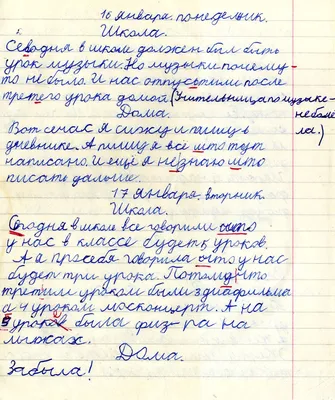 16 января понедельник.
Школа.
Севодня в школе должен был быть
урок музыки. Но музыки почему-
то не было. И нас отпустили после
третего урока домой (Учительница по музыке
Дома. не было
Вот сечас я сижу и пишу в ла.)
дневнике. А пишу я всё што тут
написано. И ещё я незнаю што
писать дальше.
17 января, вторник.
Школа.
Сегодня в школе все говорили што
у нас в классе будет 5 уроков.
А а про себя говорила што у нас
будет три урока. Потому што
третим уроком были 3 диафильма
а 4 уроком москонцерт. А на
5 уроке была физ-ра на
лыжах.
Дома.
Забыла!